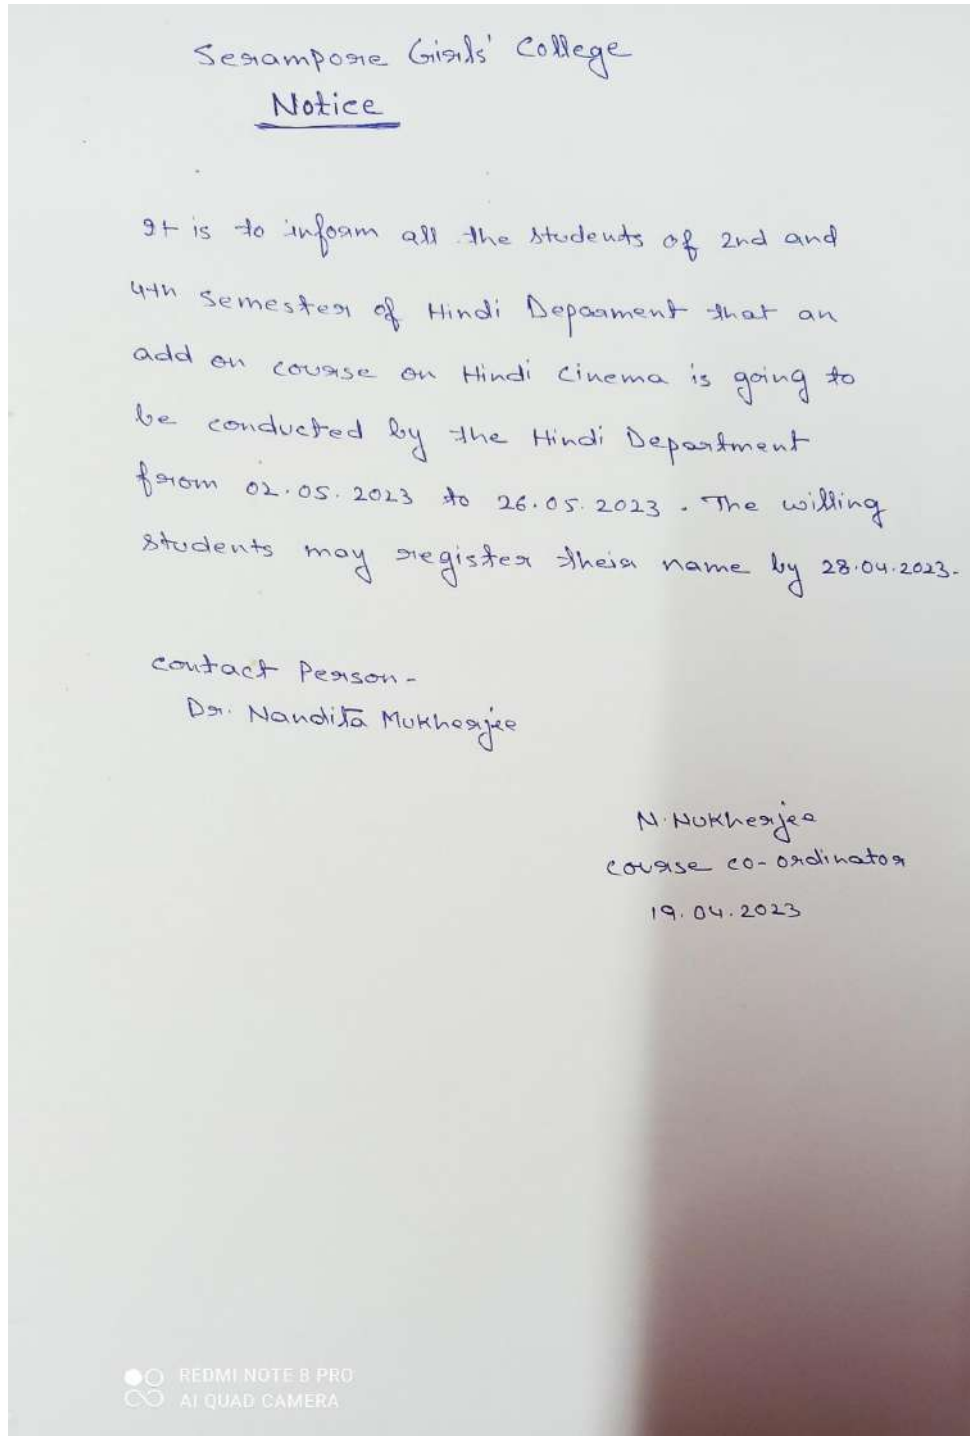 Serampore Girls' College
Notice
It is to inform all the students of 2nd and
4th semester of Hindi Deparment that an
add on course on Hindi Cinema is going to
be conducted by the Hindi Department
from 02.05.2023 to 26.05.2023. The willing
students may register their name by 28.04.2023.
Contact Person-
Dr. Nandita Mukherjee
N. Mukherjee
Course Co-ordinator
19.04.2023
REDMI NOTE 8 PRO
AI QUAD CAMERA